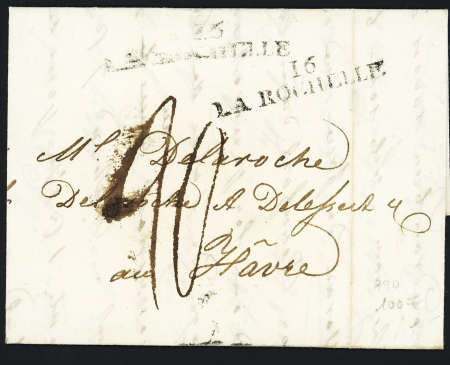 16
LA ROCHELLE
16
LA ROCHELLE
Mrs Delaroche
Delaroche A Delessert &
au Hâvre
290
100€